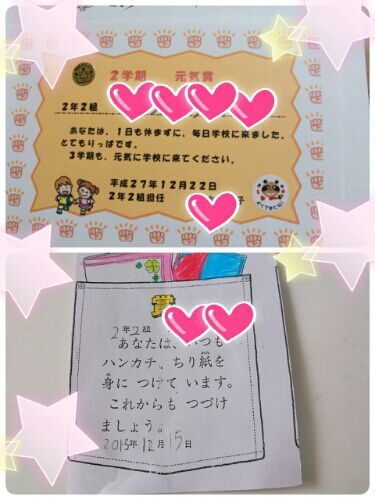 2学期 元気賞
2年2組
あなたは、1日も休まずに、毎日学校に来ました。
とてもりっぱです。
3学期も、元気に学校に来てください。
平成27年12月22日
2年2組担任 子
賞
2年2組
あなたは、いつも
ハンカチ、ちり紙を
身に つけて います。
これからも つづけ
ましょう。
2015年12月15日